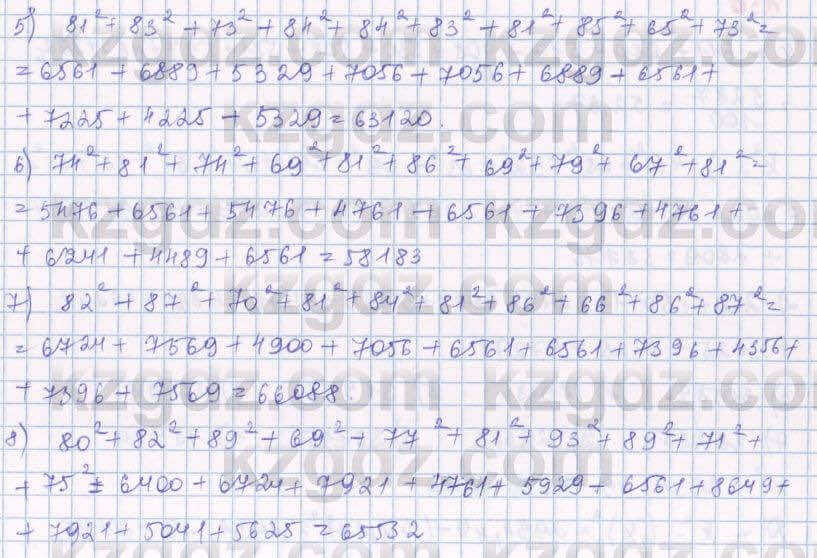 5) 81² + 83² + 73² + 84² + 84² + 83² + 81² + 85² + 65² + 73² =
= 6561 + 6889 + 5329 + 7056 + 7056 + 6889 + 6561 +
+ 7225 + 4225 + 5329 = 63120.
6) 74² + 81² + 74² + 69² + 81² + 86² + 69² + 79² + 67² + 81² =
= 5476 + 6561 + 5476 + 4761 + 6561 + 7396 + 4761 +
+ 6241 + 4489 + 6561 = 58183
7) 82² + 87² + 70² + 81² + 84² + 81² + 86² + 66² + 86² + 87² =
= 6724 + 7569 + 4900 + 7056 + 6561 + 6561 + 7396 + 4356 +
+ 7396 + 7569 = 66088.
8) 80² + 82² + 89² + 69² + 77² + 81² + 93² + 89² + 71² +
+ 75² = 6400 + 6724 + 7921 + 4761 + 5929 + 6561 + 8649 +
+ 7921 + 5041 + 5625 = 65532
kzgdz.com